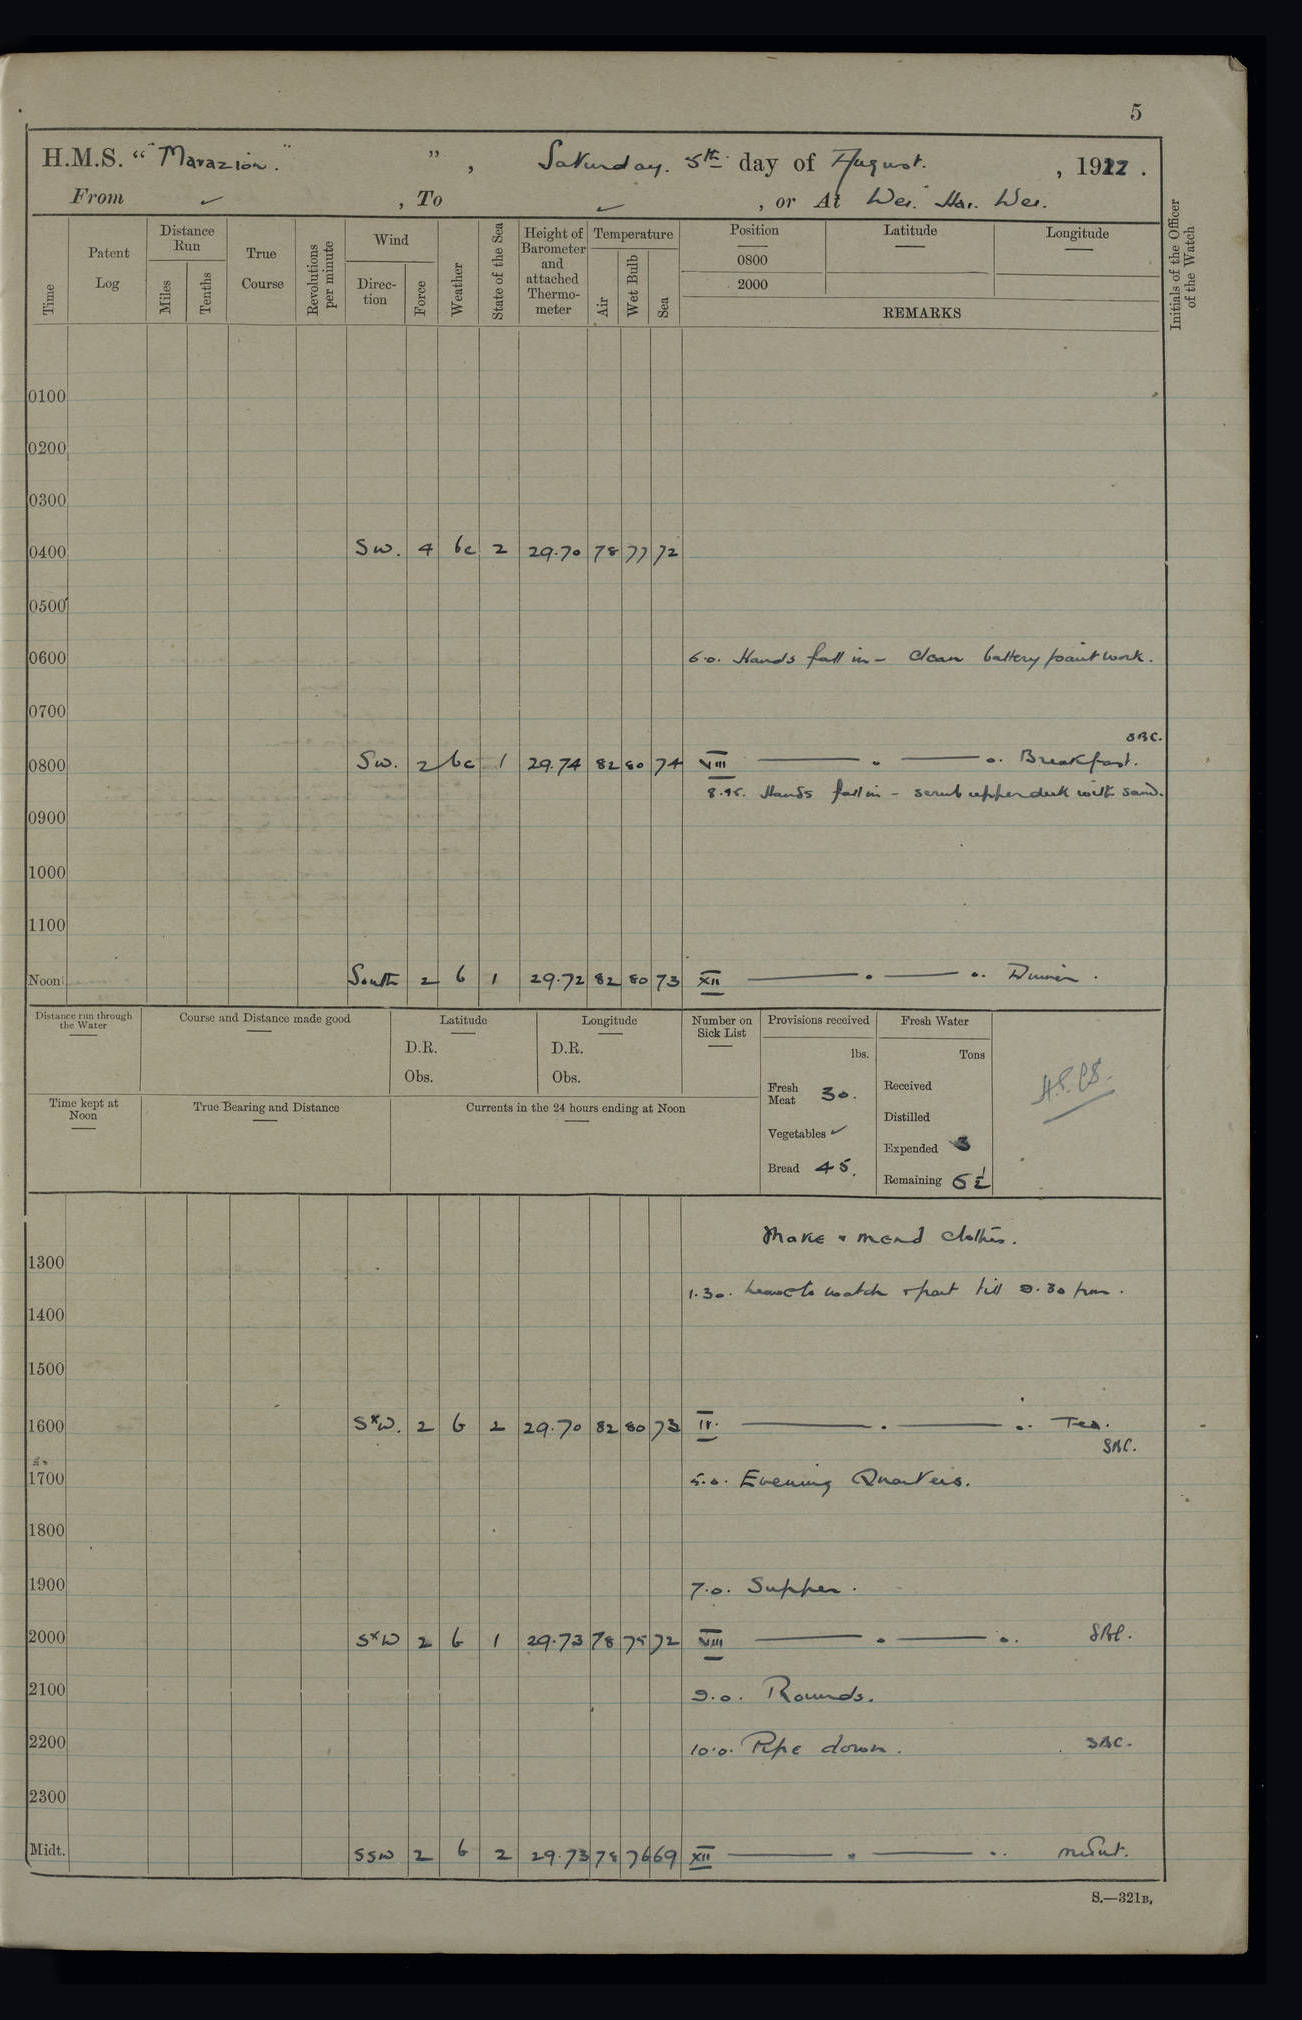 5
H.M.S. “ "Marazion." ” , Saturday. 5th day of August. , 1922 .
From ✓ , To ✓ , or At Wei. Hai. Wei.
Time
Patent Log
Distance Run
Miles
Tenths
True Course
Revolutions per minute
Wind
Direction
Force
Weather
State of the Sea
Height of Barometer and attached Thermometer
Temperature
Air
Wet Bulb
Sea
Position
0800
2000
Latitude
Longitude
REMARKS
Initials of the Officer of the Watch
0100
0200
0300
0400 SW. 4 bc 2 29.70 78 77 72
0500
0600 6.0. Hands fall in - Clean battery paintwork.
0700
SBC.
0800 SW. 2 bc 1 29.74 82 80 74 VIII Breakfast.
8.45. Hands fall in - scrub upper deck with sand.
0900
1000
1100
Noon South 2 b 1 29.72 82 80 73 XII Dinner.
Distance run through the Water
Course and Distance made good
Latitude
D.R.
Obs.
Longitude
D.R.
Obs.
Number on Sick List
Provisions received
lbs.
Fresh Meat 30.
Vegetables ✓
Bread 45.
Fresh Water
Tons
Received
Distilled
Expended 3
Remaining 6½
Time kept at Noon
True Bearing and Distance
Currents in the 24 hours ending at Noon
Make & mend clothes.
1300
1.30. Leave to watch & part till 9.30 pm.
1400
1500
1600 SxW. 2 b 2 29.70 82 80 73 IV. Tea.
SBC.
1700 5.0. Evening Quarters.
1800
1900 7.0. Supper.
2000 SxW 2 b 1 29.73 78 75 72 VIII SBC.
2100 9.0. Rounds.
2200 10.0. Pipe down. SBC.
2300
Midt. SSW 2 b 2 29.73 78 76 69 XII
S.—321B.